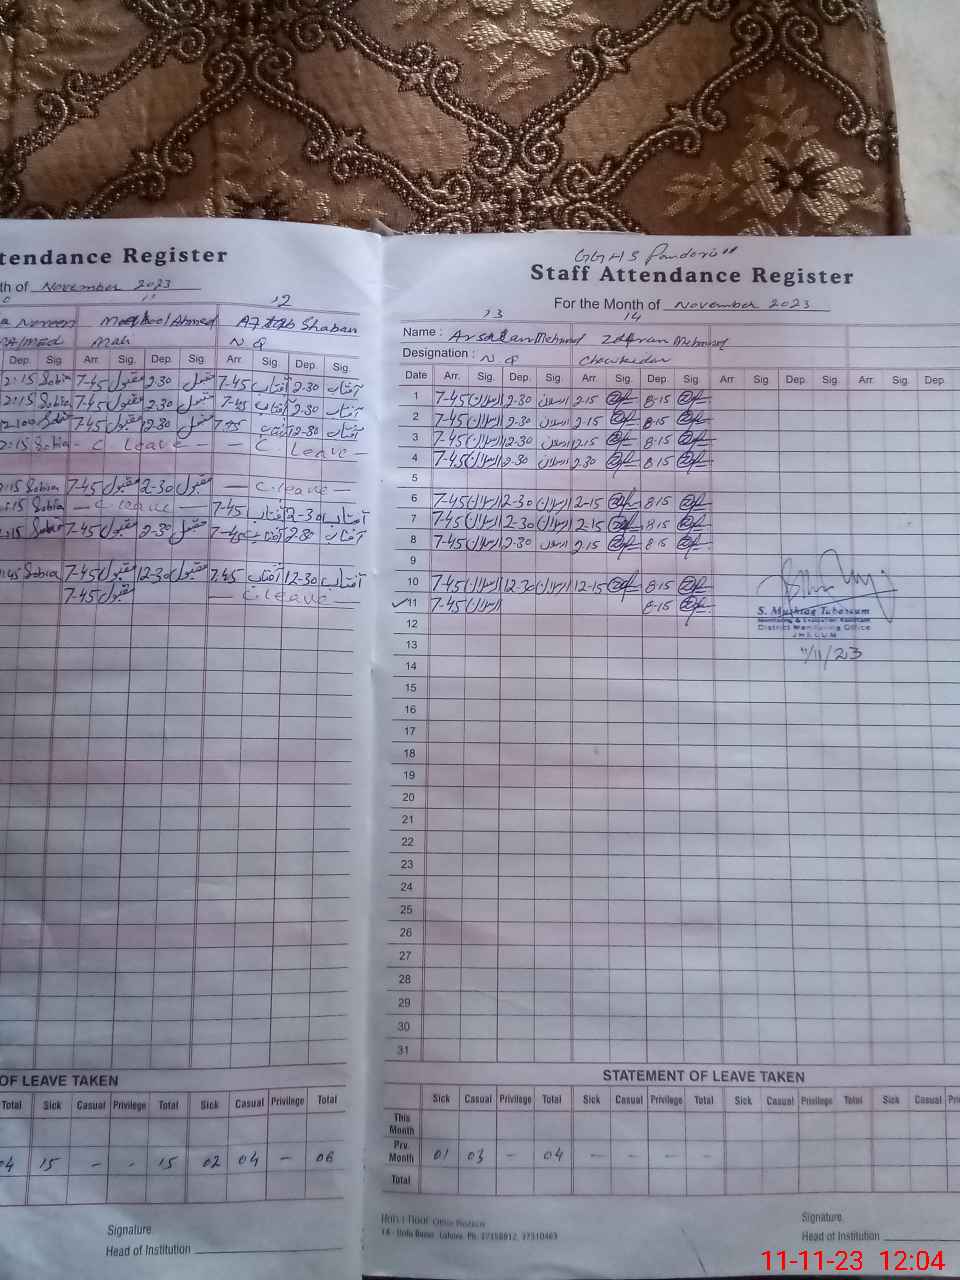 tendance Register
th of November 2023
11
12
Maqbool Ahmed
Aftab Shaban
PA/Med
Mali
N Q
Dep. Sig Arr. Sig. Dep. Sig. Arr. Sig. Dep. Sig.
2:15 Sobia 7-45 مقبول 2-30 مقبول 7-45 آفتاب 2-30 آفتاب
2:15 Sobia 7-45 مقبول 2-30 مقبول 7-45 آفتاب 2-30 آفتاب
Sobia 7-45 مقبول 12-30 مقبول 7-45 آفتاب 12-30 آفتاب
2:15 Sobia - C. Leave - - C. Leave -
:15 Sobia 7-45 مقبول 2-30 مقبول - C.leave -
:15 Sobia - C.leave - 7-45 آفتاب 2-30 آفتاب
2:15 Sobia 7-45 مقبول 2-30 مقبول 7-45 آفتاب 2-30 آفتاب
:45 Sobia 7-45 مقبول 12-30 مقبول 7-45 آفتاب 12-30 آفتاب
7-45 مقبول - C.leave -
OF LEAVE TAKEN
Total Sick Casual Privilege Total Sick Casual Privilege Total
04 15 - - 15 02 04 - 06
Signature
Head of Institution
GGHS Pandori
Staff Attendance Register
For the Month of November 2023
13
14
Name : Arsalan Mehmood
Designation : N Q Chowkidar
Date Arr. Sig. Dep. Sig. Arr. Sig. Dep. Sig. Arr Sig. Dep. Sig. Arr. Sig. Dep.
1 7-45 ارسلان 2-30 ارسلان 2-15 8-15
2 7-45 ارسلان 2-30 ارسلان 2-15 8-15
3 7-45 ارسلان 12-30 ارسلان 12-15 8-15
4 7-45 ارسلان 2-30 ارسلان 2-30 8-15
5
6 7-45 ارسلان 2-30 ارسلان 2-15 8-15
7 7-45 ارسلان 2-30 ارسلان 2-15 8-15
8 7-45 ارسلان 2-30 ارسلان 2-15 8-15
9
10 7-45 ارسلان 12-30 ارسلان 12-15 8-15
11 7-45 ارسلان 8-15
12
13
14
15
16
17
18
19
20
21
22
23
24
25
26
27
28
29
30
31
S. Mushtaq Tabassum
Monitoring & Evaluation Assistant
District Monitoring Office
JHELUM
11/11/23
STATEMENT OF LEAVE TAKEN
Sick Casual Privilege Total Sick Casual Privilege Total Sick Casual Privilege Total Sick Casual
This Month
Prv. Month 01 03 - 04 - - - -
Total
Signature
Head of Institution
11-11-23 12:04